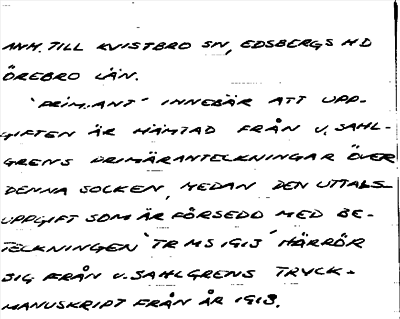 ANM. TILL KVISTBRO SN, EDSBERGS HD
ÖREBRO LÄN.
'PRIM.ANT' INNEBÄR ATT UPP-
GIFTEN ÄR HÄMTAD FRÅN J. SAHL-
GRENS PRIMÄRANTECKNINGAR ÖVER
DENNA SOCKEN, MEDAN DEN UTTALS-
UPPGIFT SOM ÄR FÖRSEDD MED BE-
TECKNINGEN 'TR MS 1913' HÄRRÖR
SIG FRÅN J. SAHLGRENS TRYCK-
MANUSKRIPT FRÅN ÅR 1913.